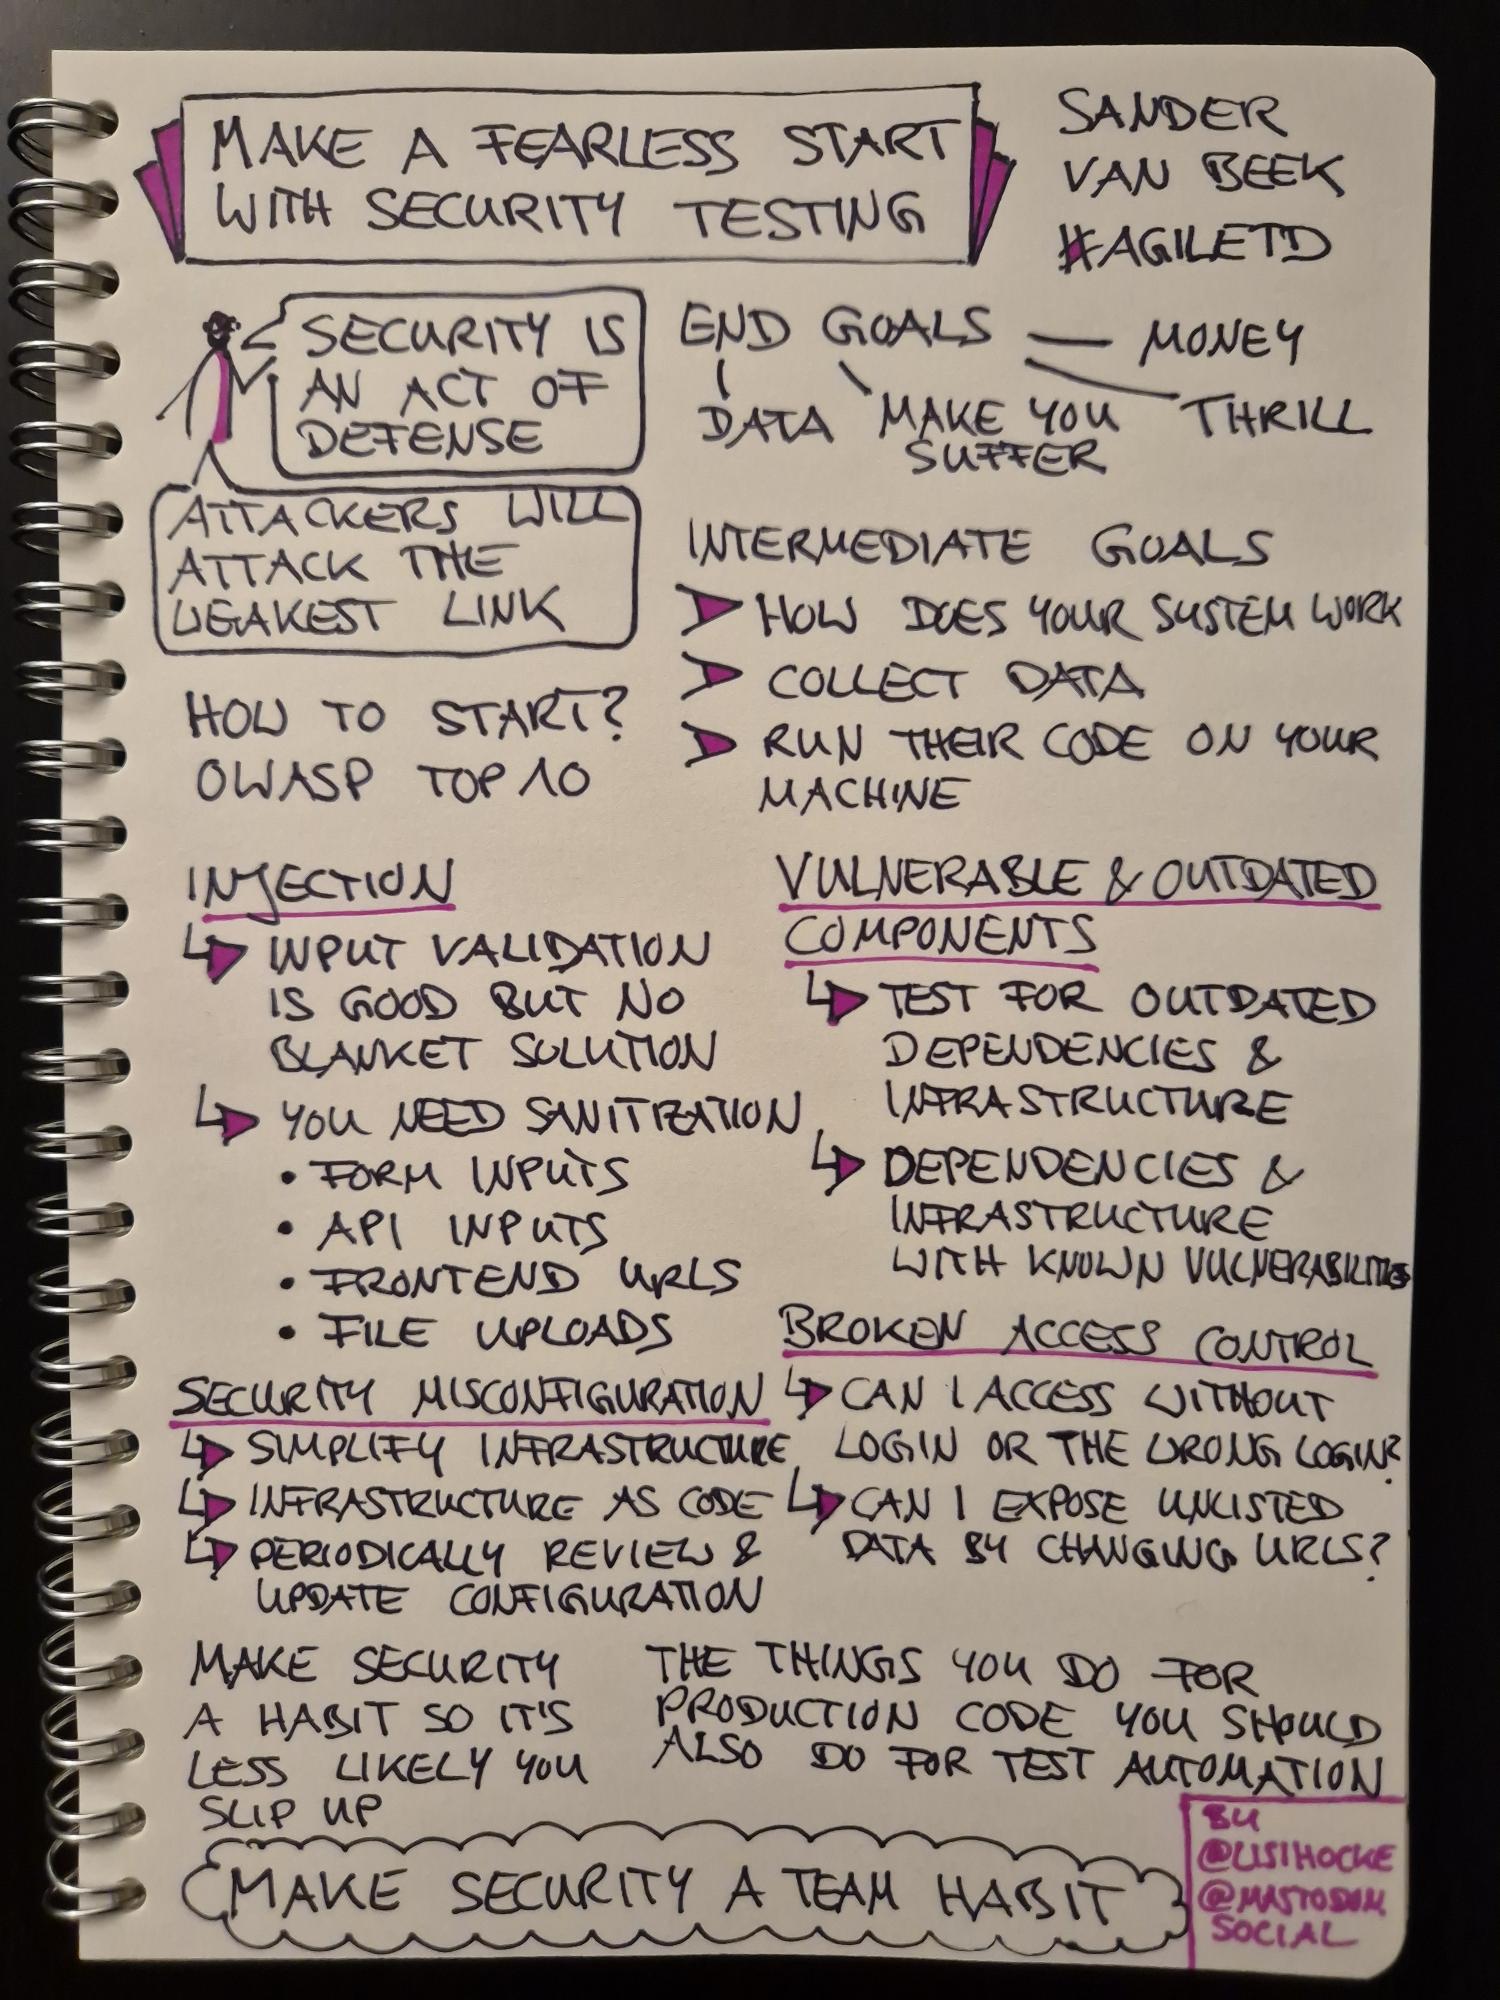 MAKE A FEARLESS START
WITH SECURITY TESTING
SANDER
VAN BEEK
#AGILETD
SECURITY IS
AN ACT OF
DEFENSE
ATTACKERS WILL
ATTACK THE
WEAKEST LINK
END GOALS
MONEY
THRILL
MAKE YOU
SUFFER
DATA
INTERMEDIATE GOALS
HOW DOES YOUR SYSTEM WORK
COLLECT DATA
RUN THEIR CODE ON YOUR
MACHINE
HOW TO START?
OWASP TOP 10
INJECTION
INPUT VALIDATION
IS GOOD BUT NO
BLANKET SOLUTION
YOU NEED SANITIZATION
• FORM INPUTS
• API INPUTS
• FRONTEND URLS
• FILE UPLOADS
VULNERABLE & OUTDATED
COMPONENTS
TEST FOR OUTDATED
DEPENDENCIES &
INFRASTRUCTURE
DEPENDENCIES &
INFRASTRUCTURE
WITH KNOWN VULNERABILITIES
SECURITY MISCONFIGURATION
SIMPLIFY INFRASTRUCTURE
INFRASTRUCTURE AS CODE
PERIODICALLY REVIEW &
UPDATE CONFIGURATION
BROKEN ACCESS CONTROL
CAN I ACCESS WITHOUT
LOGIN OR THE WRONG LOGIN?
CAN I EXPOSE UNLISTED
DATA BY CHANGING URLS?
MAKE SECURITY
A HABIT SO IT'S
LESS LIKELY YOU
SLIP UP
THE THINGS YOU DO FOR
PRODUCTION CODE YOU SHOULD
ALSO DO FOR TEST AUTOMATION
MAKE SECURITY A TEAM HABIT
BY
@LISIHOCKE
@MASTODON.
SOCIAL